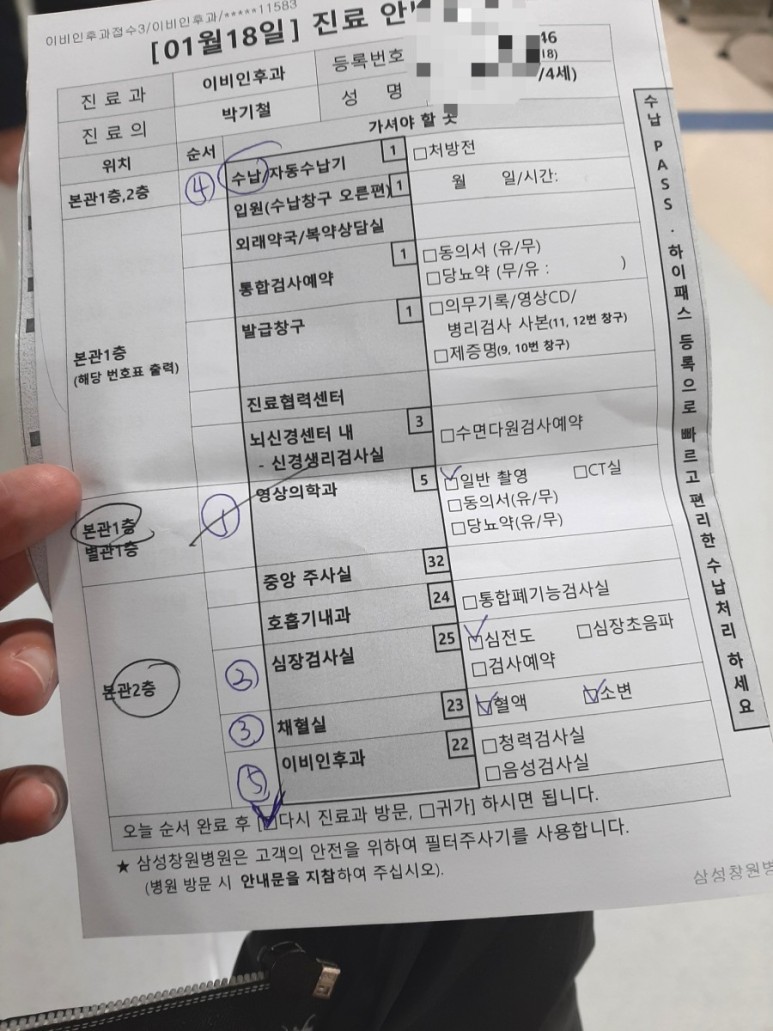 이비인후과접수3/이비인후과/*****11583
[01월18일] 진료
진료과 이비인후과 등록번호 46
18)
진료의 박기철 성 명 /4세)
위치 순서 가셔야 할 곳
본관1층,2층 ④ 수납/자동수납기 1 □처방전
입원(수납창구 오른편) 1 월 일/시간:
외래약국/복약상담실
통합검사예약 1 □동의서 (유/무)
□당뇨약 (무/유 : )
본관1층
(해당 번호표 출력)
발급창구 1 □의무기록/영상CD/
병리검사 사본(11, 12번 창구)
□제증명(9, 10번 창구)
진료협력센터
뇌신경센터 내
- 신경생리검사실 3 □수면다원검사예약
본관1층
별관1층
① 영상의학과 5 ☑일반 촬영 □CT실
□동의서(유/무)
□당뇨약(유/무)
중앙 주사실 32
호흡기내과 24 □통합폐기능검사실
본관2층
② 심장검사실 25 ☑심전도 □심장초음파
□검사예약
③ 채혈실 23 ☑혈액 ☑소변
⑤ 이비인후과 22 □청력검사실
□음성검사실
오늘 순서 완료 후 [☑다시 진료과 방문, □귀가] 하시면 됩니다.
★ 삼성창원병원은 고객의 안전을 위하여 필터주사기를 사용합니다.
(병원 방문 시 안내문을 지참하여 주십시오).
삼성창원병
수납 PASS · 하이패스 등록으로 빠르고 편리한 수납처리 하세요